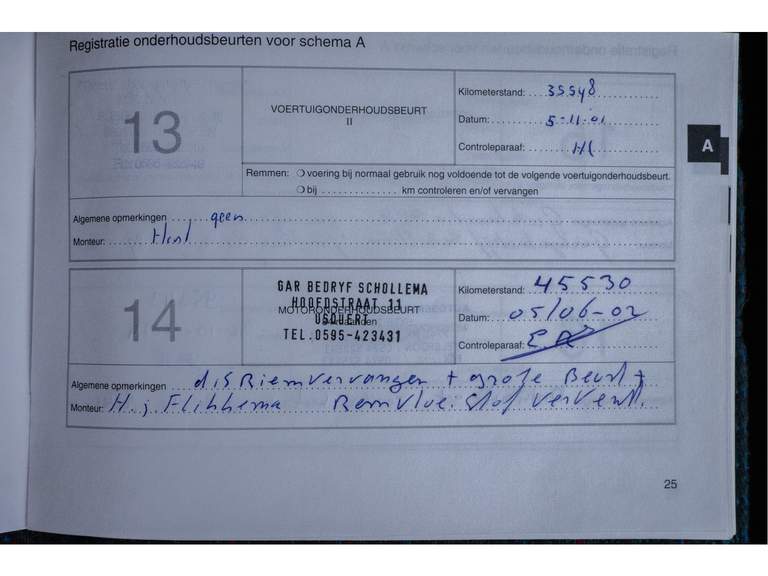 Registratie onderhoudsbeurten voor schema A
13
VOERTUIGONDERHOUDSBEURT
II
Kilometerstand: 35548
Datum: 5-11-01
Controleparaaf:
A
Remmen: ❍ voering bij normaal gebruik nog voldoende tot de volgende voertuigonderhoudsbeurt.
❍ bij .............. km controleren en/of vervangen
Algemene opmerkingen geen
Monteur:
14
GAR BEDRYF SCHOLLEMA
HOOFDSTRAAT 11
MOTORONDERHOUDSBEURT
USQUERT
TEL.0595-423431
Kilometerstand: 45530
Datum: 05/06-02
Controleparaaf:
Algemene opmerkingen disRiem vervangen + grote Beurt +
Monteur: H.j. Flikkema Remvloeistof ververst.
25